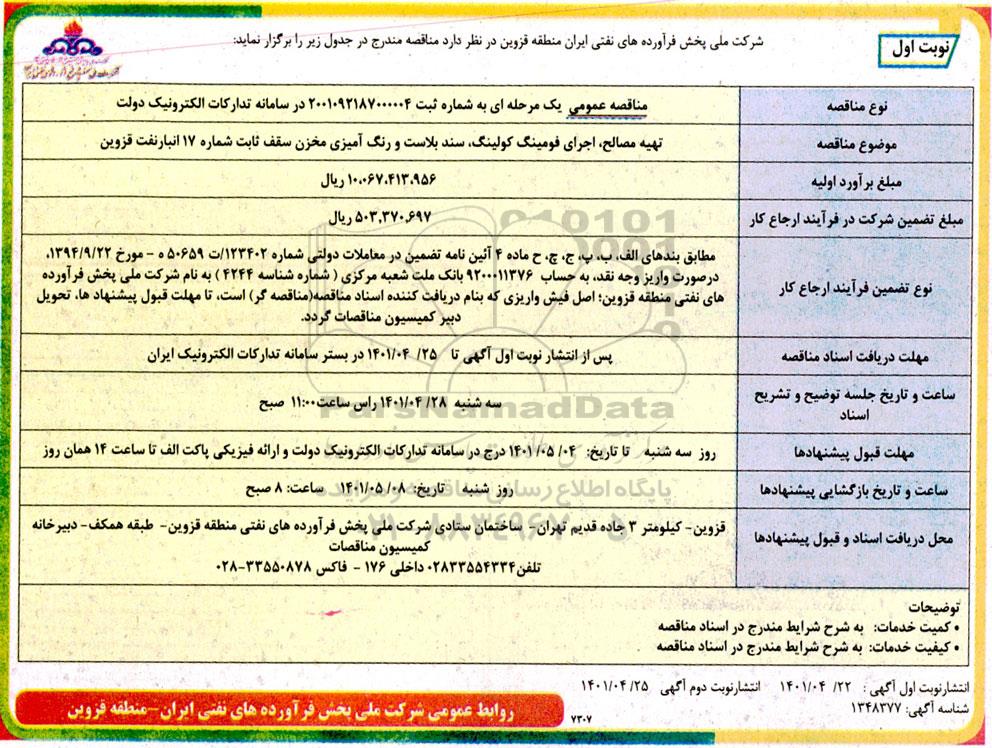 نوبت اول
شرکت ملی پخش فرآورده های نفتی ایران منطقه قزوین در نظر دارد مناقصه مندرج در جدول زیر را برگزار نماید:
نوع مناقصه
مناقصه عمومی یک مرحله ای به شماره ثبت ۲۰۰۱۰۹۲۱۸۷۰۰۰۰۰۴ در سامانه تدارکات الکترونیک دولت
موضوع مناقصه
تهیه مصالح، اجرای فومینگ کولینگ، سند بلاست و رنگ آمیزی مخزن سقف ثابت شماره ۱۷ انبارنفت قزوین
مبلغ برآورد اولیه
۱۰،۰۶۷،۴۱۳،۹۵۶ ریال
مبلغ تضمین شرکت در فرآیند ارجاع کار
۵۰۳،۳۷۰،۶۹۷ ریال
نوع تضمین فرآیند ارجاع کار
مطابق بندهای الف، ب، پ، ج، چ، ح ماده ۴ آئین نامه تضمین در معاملات دولتی شماره ۱۲۳۴۰۲/ت ۵۰۶۵۹ ه - مورخ ۱۳۹۴/۹/۲۲،
درصورت واریز وجه نقد، به حساب ۹۲۰۰۰۱۱۳۷۶ بانک ملت شعبه مرکزی ( شماره شناسه ۴۲۴۴ ) به نام شرکت ملی پخش فرآورده
های نفتی منطقه قزوین؛ اصل فیش واریزی که بنام دریافت کننده اسناد مناقصه(مناقصه گر) است، تا مهلت قبول پیشنهاد ها، تحویل
دبیر کمیسیون مناقصات گردد.
مهلت دریافت اسناد مناقصه
پس از انتشار نوبت اول آگهی تا ۲۵/ ۱۴۰۱/۰۴ در بستر سامانه تدارکات الکترونیک ایران
ساعت و تاریخ جلسه توضیح و تشریح
اسناد
سه شنبه ۲۸/ ۱۴۰۱/۰۴ راس ساعت۱۱:۰۰ صبح
مهلت قبول پیشنهادها
روز سه شنبه تا تاریخ: ۰۴/ ۰۵/ ۱۴۰۱ درج در سامانه تدارکات الکترونیک دولت و ارائه فیزیکی پاکت الف تا ساعت ۱۴ همان روز
ساعت و تاریخ بازگشایی پیشنهادها
روز شنبه تاریخ: ۰۸/ ۱۴۰۱/۰۵ ساعت: ۸ صبح
محل دریافت اسناد و قبول پیشنهادها
قزوین- کیلومتر ۳ جاده قدیم تهران- ساختمان ستادی شرکت ملی پخش فرآورده های نفتی منطقه قزوین- طبقه همکف- دبیرخانه
کمیسیون مناقصات
تلفن۰۲۸۳۳۵۵۴۳۳۴ داخلی ۱۷۶ - فاکس ۳۳۵۵۰۸۷۸-۰۲۸
توضیحات
• کمیت خدمات: به شرح شرایط مندرج در اسناد مناقصه
• کیفیت خدمات: به شرح شرایط مندرج در اسناد مناقصه
انتشارنوبت اول آگهی : ۲۲/ ۱۴۰۱/۰۴ انتشارنوبت دوم آگهی ۲۵/ ۱۴۰۱/۰۴
شناسه آگهی: ۱۳۴۸۳۷۷
۷۳۰۷
روابط عمومی شرکت ملی پخش فرآورده های نفتی ایران –منطقه قزوین
ParsNamadData
پایگاه اطلاع رسانی مناقصه و مزایده